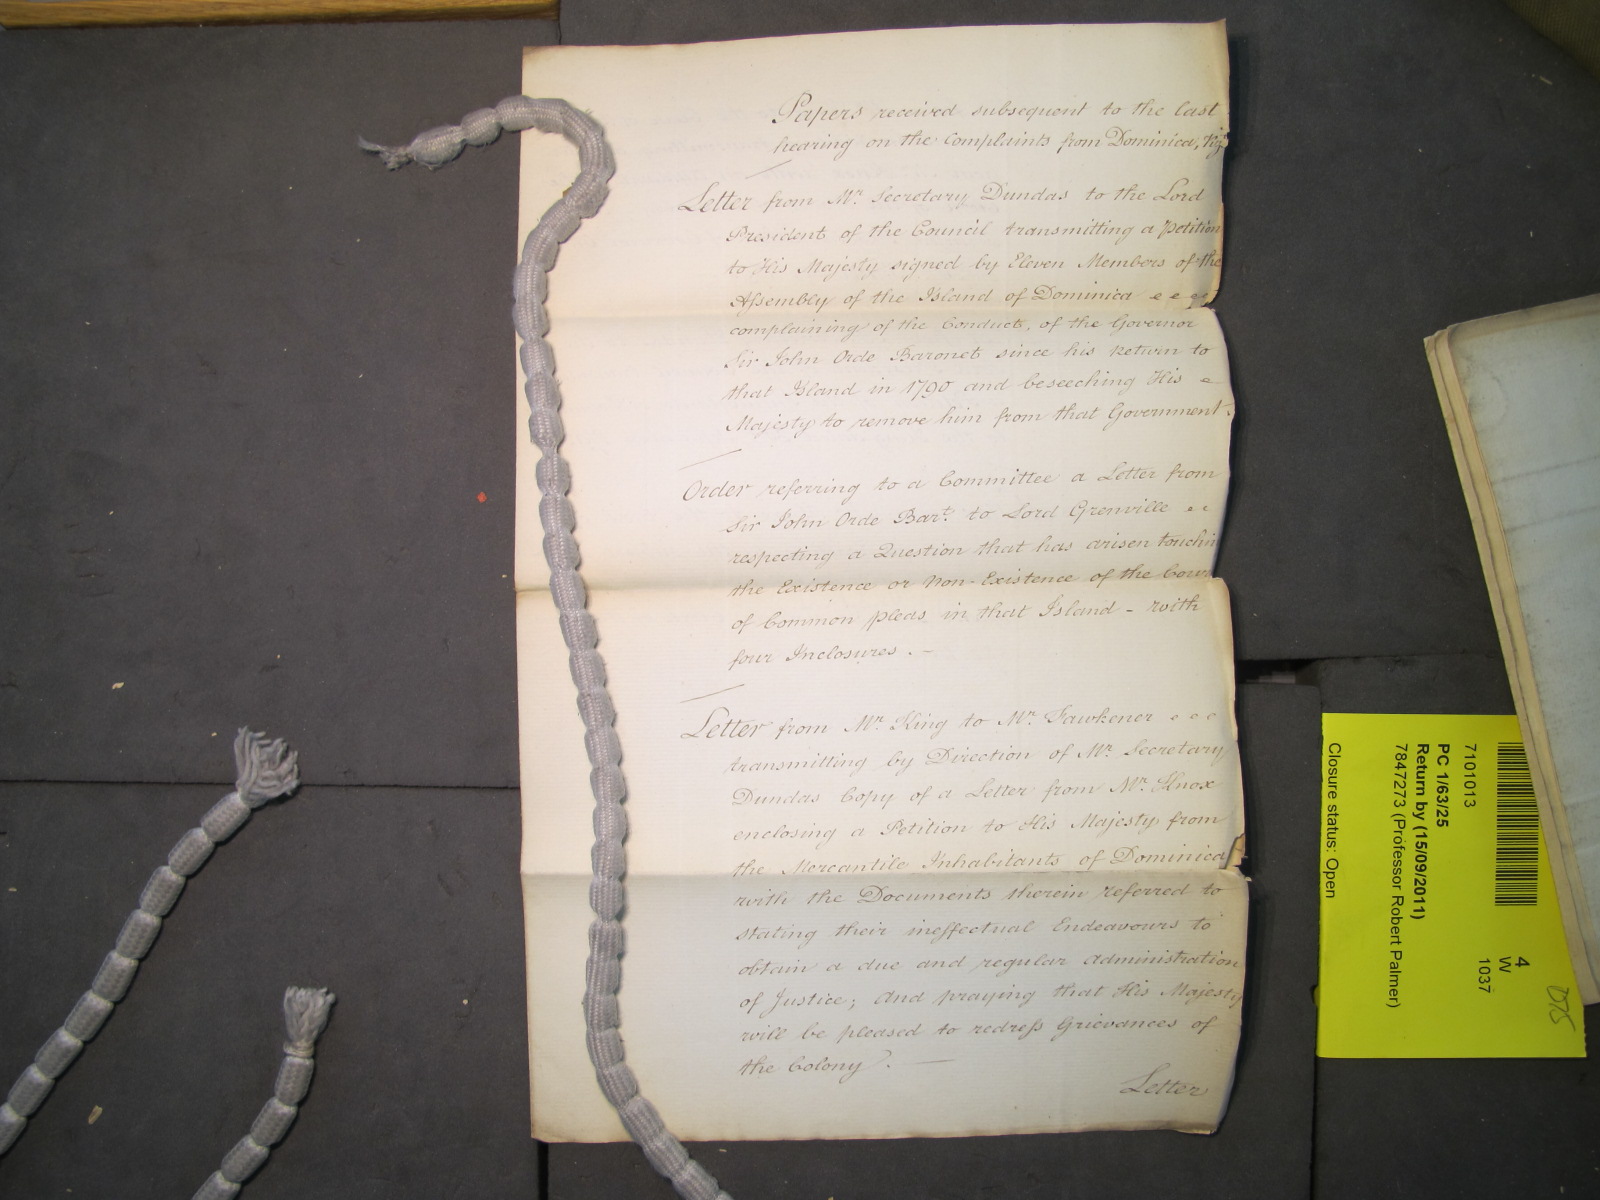 Papers received subsequent to the last
hearing on the Complaints from Dominica, Viz.t
Letter from Mr. Secretary Dundas to the Lord
President of the Council transmitting a Petition
to His Majesty signed by Eleven Members of the
Assembly of the Island of Dominica
complaining of the Conduct of the Governor
Sir John Orde Baronet since his Return to
that Island in 1790 and beseeching His
Majesty to remove him from that Government.
Order referring to a Committee a Letter from
Sir John Orde Bart. to Lord Grenville
respecting a Question that has arisen touchin
the Existence or Non-Existence of the Cour
of Common Pleas in that Island - with
four Inclosures. -
Letter from Mr. King to Mr. Fawkener
transmitting by Direction of Mr. Secretary
Dundas Copy of a Letter from Mr. Knox
enclosing a Petition to His Majesty from
the Mercantile Inhabitants of Dominica
with the Documents therein referred to
stating their ineffectual Endeavours to
obtain a due and regular Administration
of Justice; and praying that His Majesty
will be pleased to redress Grievances of
the Colony. -
Letter
7101013
PC 1/63/25
Return by (15/09/2011)
7847273 (Professor Robert Palmer)
Closure status: Open
4
W
1037